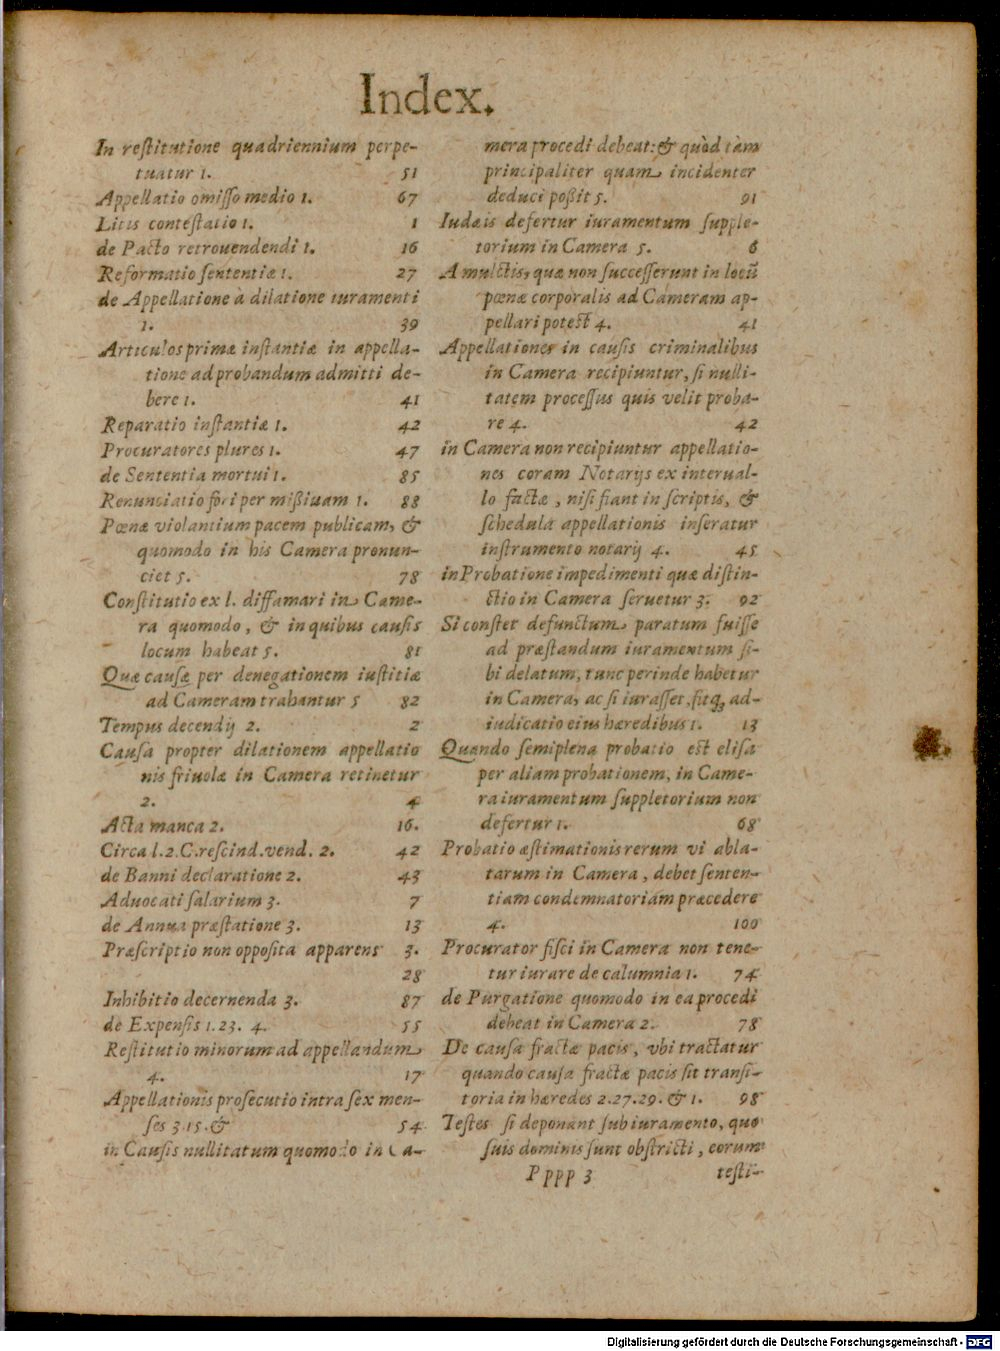 Index.
In reſtitutione quadriennium perpe-
tuatur 1. 51
Appellatio omiſſo medio 1. 67
Litis conteſtatio 1. 1
de Pacto retrouendendi 1. 16
Reformatio ſententiæ 1. 27
de Appellatione à dilatione iuramenti
1. 39
Articulos primæ inſtantiæ in appella-
tione ad probandum admitti de-
bere 1. 41
Reparatio inſtantiæ 1. 42
Procuratores plures 1. 47
de Sententia mortui 1. 85
Renunciatio fori per mißiuam 1. 88
Pœnæ violantium pacem publicam, &
quomodo in his Camera pronun-
ciet 5. 78
Conſtitutio ex l. diffamari in Came-
ra quomodo, & in quibus cauſis
locum habeat 5. 81
Quæ cauſæ per denegationem iuſtitiæ
ad Cameram trahantur 5 82
Tempus decendij 2. 2
Cauſa propter dilationem appellatio
nis friuolæ in Camera retinetur
2. 4
Acta manca 2. 16.
Circa l.2.C.reſcind.vend. 2. 42
de Banni declaratione 2. 43
Aduocati ſalarium 3. 7
de Annua præſtatione 3. 13
Præſcriptio non oppoſita apparens 3.
28
Inhibitio decernenda 3. 87
de Expenſis 1.23. 4. 55
Reſtitutio minorum ad appellandum
4. 17
Appellationis proſecutio intra ſex men-
ſes 3.15.& 54
in Cauſis nullitatum quomodo in Ca-
mera procedi debeat: & quòd tàm
principaliter quam incidenter
deduci poßit 5. 91
Iudæis defertur iuramentum ſupple-
torium in Camera 5. 6
A mulctis, quæ non ſucceſſerunt in locū
pœnæ corporalis ad Cameram ap-
pellari poteſt 4. 41
Appellationes in cauſis criminalibus
in Camera recipiuntur, ſi nulli-
tatem proceſſus quis velit proba-
re 4. 42
in Camera non recipiuntur appellatio-
nes coram Notarijs ex interual-
lo factæ, niſi fiant in ſcriptis, &
ſchedula appellationis inſeratur
inſtrumento notarij 4. 45
in Probatione impedimenti quæ diſtin-
ctio in Camera ſeruetur 3. 92
Si conſtet defunctum paratum fuiſſe
ad præſtandum iuramentum ſi-
bi delatum, tunc perinde habetur
in Camera, ac ſi iuraſſet, fitq́; ad-
iudicatio eius hæredibus 1. 13
Quando ſemiplena probatio eſt eliſa
per aliam probationem, in Came-
ra iuramentum ſuppletorium non
defertur 1. 68
Probatio æſtimationis rerum vi abla-
tarum in Camera, debet ſenten-
tiam condemnatoriam præcedere
4. 100
Procurator fiſci in Camera non tene-
tur iurare de calumnia 1. 74
de Purgatione quomodo in ea procedi
debeat in Camera 2. 78
De cauſa fractæ pacis, vbi tractatur
quando cauſa fractæ pacis ſit tranſi-
toria in hæredes 2.27.29. & 1. 98
Teſtes ſi deponant ſub iuramento, quo
ſuis dominis ſunt obſtricti, eorum
Pppp 3 teſti-
Digitalisierung gefördert durch die Deutsche Forschungsgemeinschaft - DFG